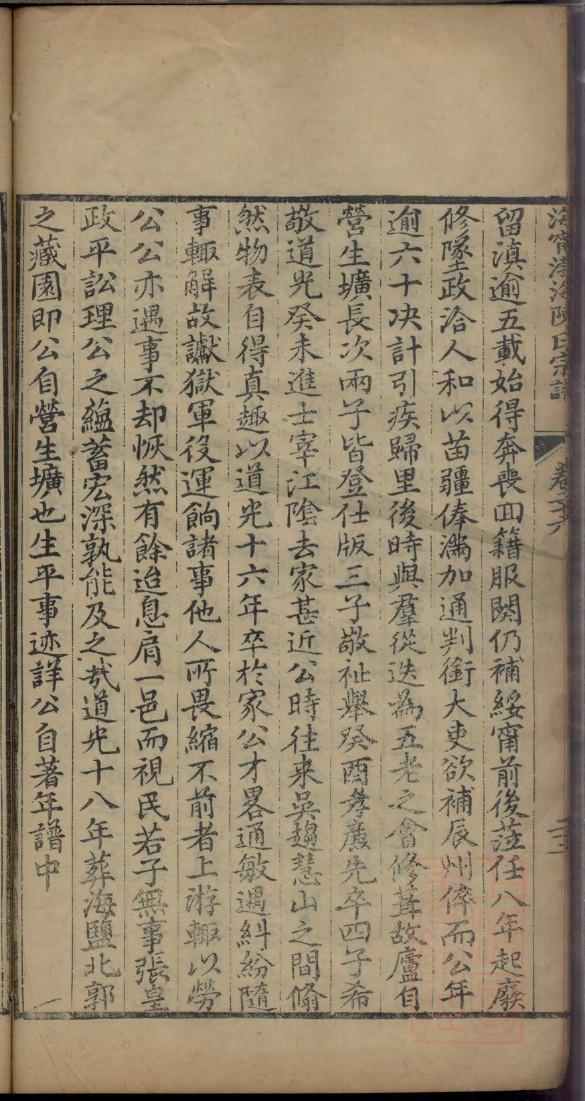 海甯渤海陳氏宗譜
留滇逾五載始得奔喪回籍服闋仍補綏甯前後蒞任八年起廢
修墜政洽人和以苗疆俸滿加通判銜大吏欲補辰州倅而公年
逾六十决計引疾歸里後時與羣從迭為五老之會修葺故廬自
營生壙長次兩子皆登仕版三子敬祉舉癸酉孝廉先卒四子希
敬道光癸未進士宰江陰去家甚近公時往来吳趨慧山之間翛
然物表自得真趣以道光十六年卒於家公才畧通敏遇糾紛隨
事輙解故讞獄軍役運餉諸事他人所畏縮不前者上游輙以勞
公公亦遇事不却恢然有餘迨息肩一邑而視民若子無事張皇
政平訟理公之蘊蓄宏深孰能及之哉道光十八年葬海鹽北郭
之藏園即公自營生壙也生平事迹詳公自著年譜中